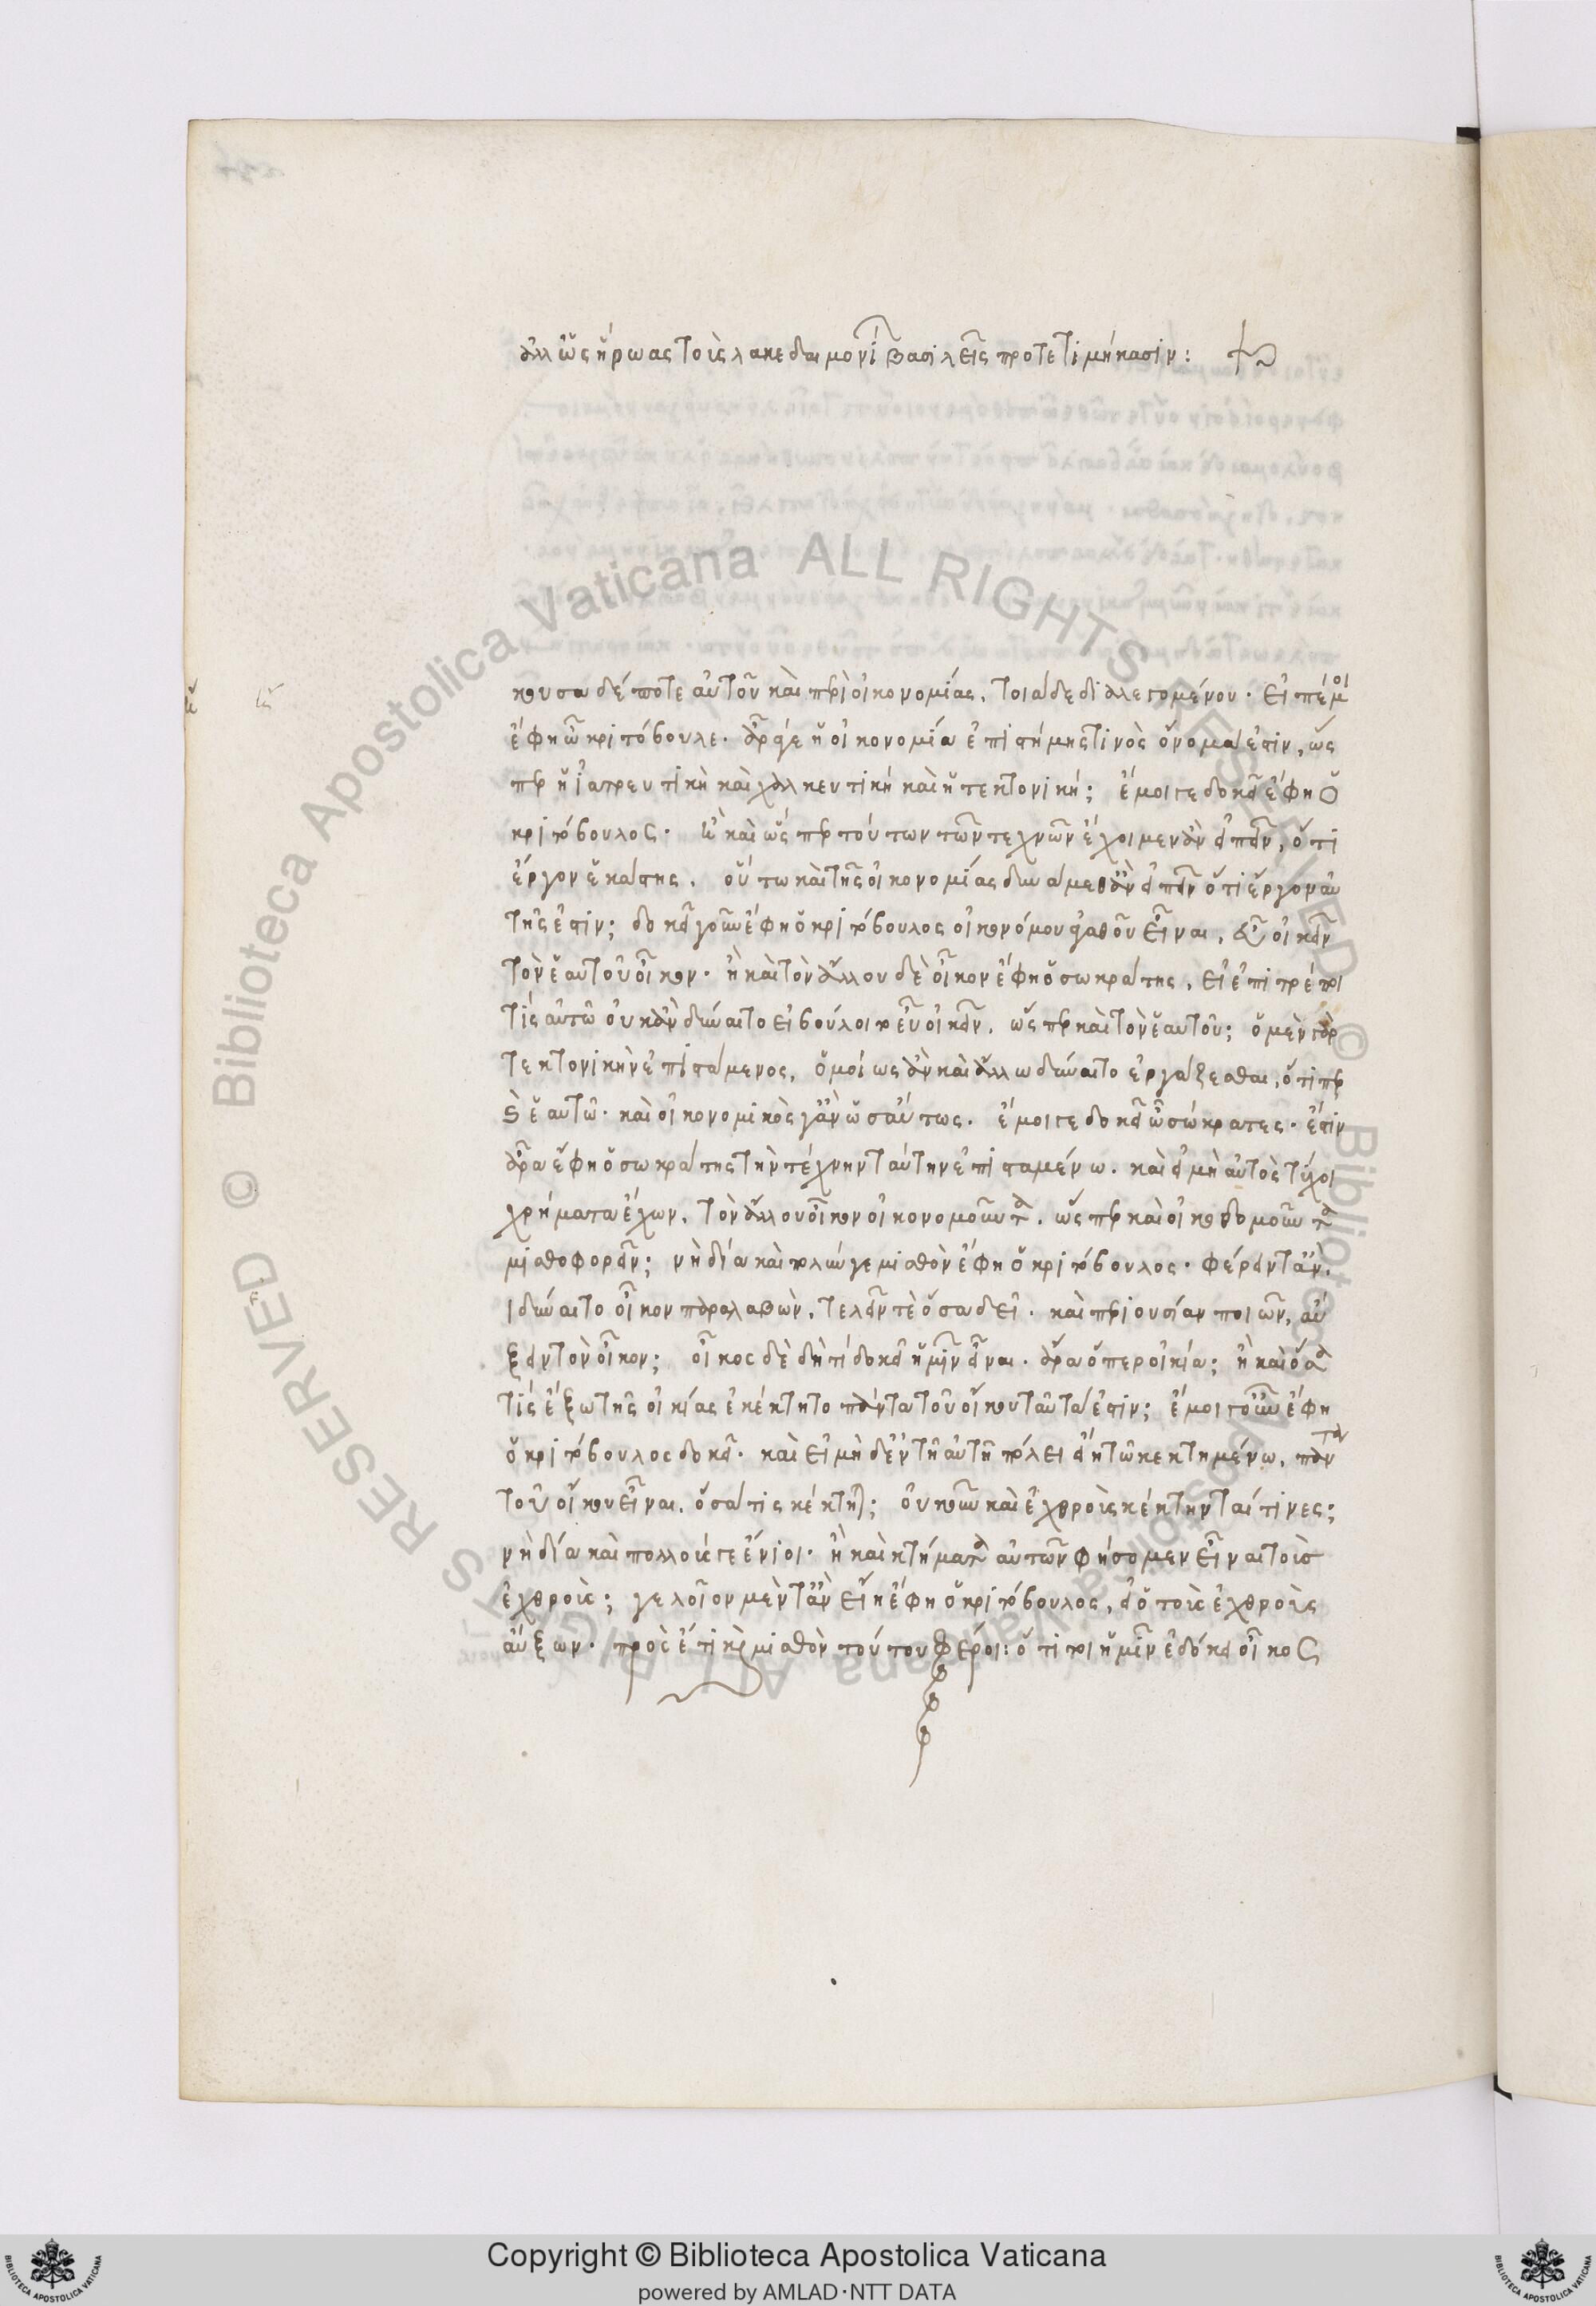 ἀλλ' ὡς ἥρωας τοὺς λακεδαιμονίων βασιλεῖς προτετιμήκασιν:
κουσα δέ ποτε αὐτοῦ καὶ περὶ οἰκονομίας, τοιάδε διαλεγομένου. εἰπέ μοι
ἔφη ὦ κριτόβουλε. ἆρά γε ἡ οἰκονομία ἐπιστήμης τινὸς ὄνομά ἐστιν, ὥς
περ ἡ ἰατρευτικὴ καὶ χαλκευτικὴ καὶ ἡ τεκτονική; ἔμοιγε δοκεῖ ἔφη ὁ
κριτόβουλος. ἦ καὶ ὥσπερ τούτων τῶν τεχνῶν ἔχοιμεν ἂν εἰπεῖν, ὅτι
ἔργον ἑκάστης, οὕτω καὶ τῆς οἰκονομίας δυναίμεθ' ἂν εἰπεῖν ὅτι ἔργον αὐ
τῆς ἐστιν; δοκεῖ γοῦν ἔφη ὁ κριτόβουλος οἰκονόμου ἀγαθοῦ εἶναι, εὖ οἰκεῖν
τὸν ἑαυτοῦ οἶκον. ἢ καὶ τὸν ἄλλου δὲ οἶκον ἔφη ὁ σωκράτης, εἰ ἐπιτρέποι
τίς αὐτῶ οὐκ ἂν δύναιτο εἰ βούλοιτο εὖ οἰκεῖν, ὥσπερ καὶ τὸν ἑαυτοῦ; ὁ μὲν γὰρ
τεκτονικὴν ἐπιστάμενος, ὁμοίως ἂν καὶ ἄλλω δύναιτο ἐργάζεσθαι, ὅτιπερ
καὶ ἑαυτῶ. καὶ οἰκονομικός γ' ἂν ὡσαύτως. ἔμοιγε δοκεῖ ὦ σώκρατες. ἔστιν
ἄρα ἔφη ὁ σωκράτης τὴν τέχνην ταύτην ἐπισταμένω. καὶ εἰ μὴ αὐτὸς τύχοι
χρήματα ἔχων, τὸν ἄλλου οἶκον οἰκονομοῦντα, ὥσπερ καὶ οἰκοδομοῦντα
μισθοφορεῖν; νὴ δία καὶ πολύν γε μισθὸν ἔφη ὁ κριτόβουλος. φέρειν τ' ἂν,
ι δύναιτο οἶκον παραλαβὼν, τελεῖν τὲ ὅσα δεῖ. καὶ περιουσίαν ποιῶν, αὔ
ξειν τὸν οἶκον; οἶκος δὲ δὴ τί δοκεῖ ἡμῖν εἶναι. ἆρα ὅπερ οἰκία; ἢ καὶ ὅσα
τίς ἔξω τῆς οἰκίας ἐκέκτητο πάντα τοῦ οἴκου ταῦτά ἐστιν; ἔμοι γοῦν ἔφη
ὁ κριτόβουλος δοκεῖ. καὶ εἰ μὴ δ' ἐν τῆ αὐτῆ πόλει εἴη τῶ κεκτημένω, πάντα
τοῦ οἴκου εἶναι, ὅσά τις κέκτηται; οὐκοῦν καὶ ἐχθροὺς κέκτηνταί τινες;
νὴ δία καὶ πολλούς γε ἔνιοι. ἢ καὶ κτήματα αὐτῶν φήσομεν εἶναι τοὺς
ἐχθρούς; γελοῖον μὲν τ' ἂν εἴη ἔφη ὁ κριτόβουλος, εἰ ὁ τοὺς ἐχθροὺς
αὔξων. προσέτι καὶ μισθὸν τούτου φέροι: ὅτι τοι ἡμῖν ἐδόκει οἶκος
Copyright © Biblioteca Apostolica Vaticana
powered by AMLAD·NTT DATA